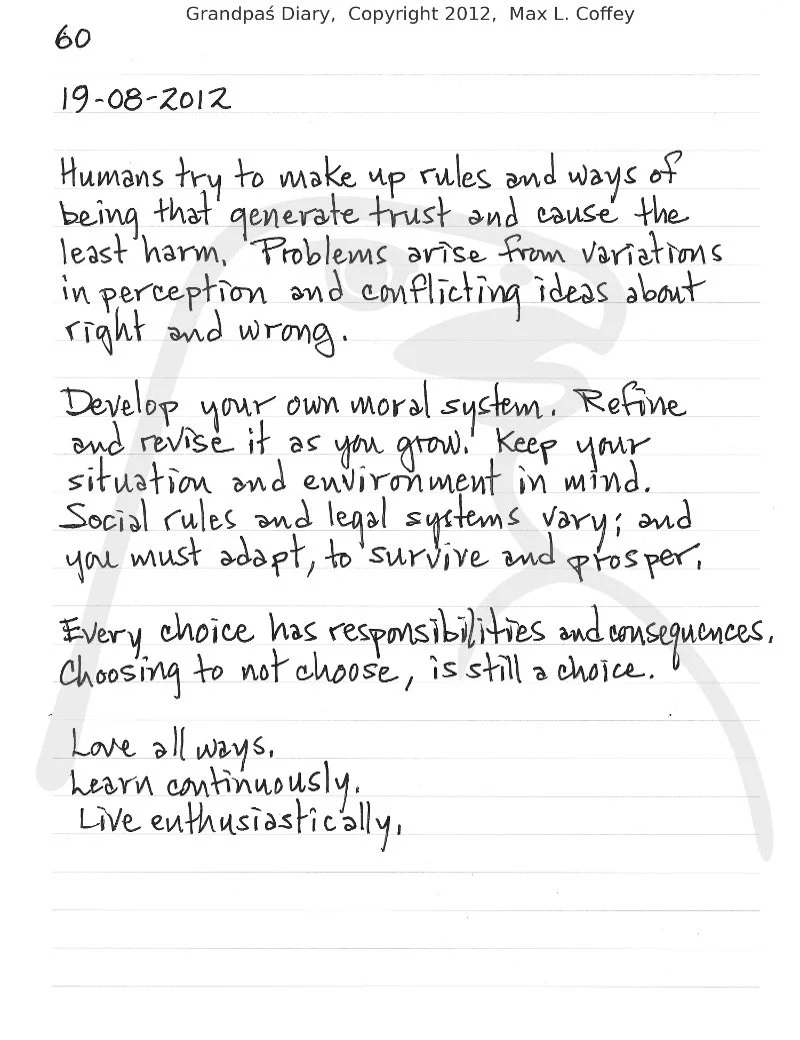 Grandpaś Diary,  Copyright 2012,  Max L. Coffey
60
19-08-2012
Humans try to make up rules and ways of
being that generate trust and cause the
least harm. Problems arise from variations
in perception and conflicting ideas about
right and wrong.
Develop your own moral system. Refine
and revise it as you grow. Keep your
situation and environment in mind.
Social rules and legal systems vary; and
you must adapt, to survive and prosper.
Every choice has responsibilities and consequences.
Choosing to not choose, is still a choice.
Love all ways.
Learn continuously.
Live enthusiastically.